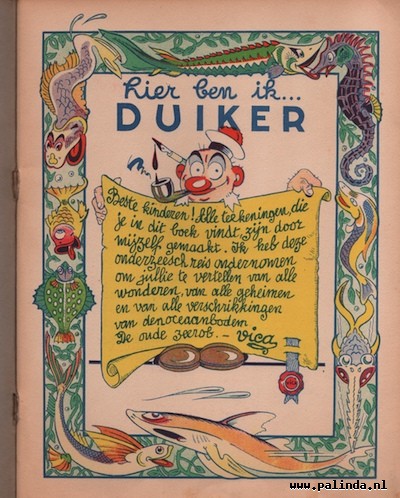 hier ben ik...
DUIKER
Beste kinderen! Alle teekeningen, die
je in dit boek vindt, zijn door
mijzelf gemaakt. Ik heb deze
onderzeesch reis ondernomen
om jullie te vertellen van alle
wonderen, van alle geheimen
en van alle verschrikkingen
van den oceaanbodem
De oude zeerob. - Vica
www.palinda.nl